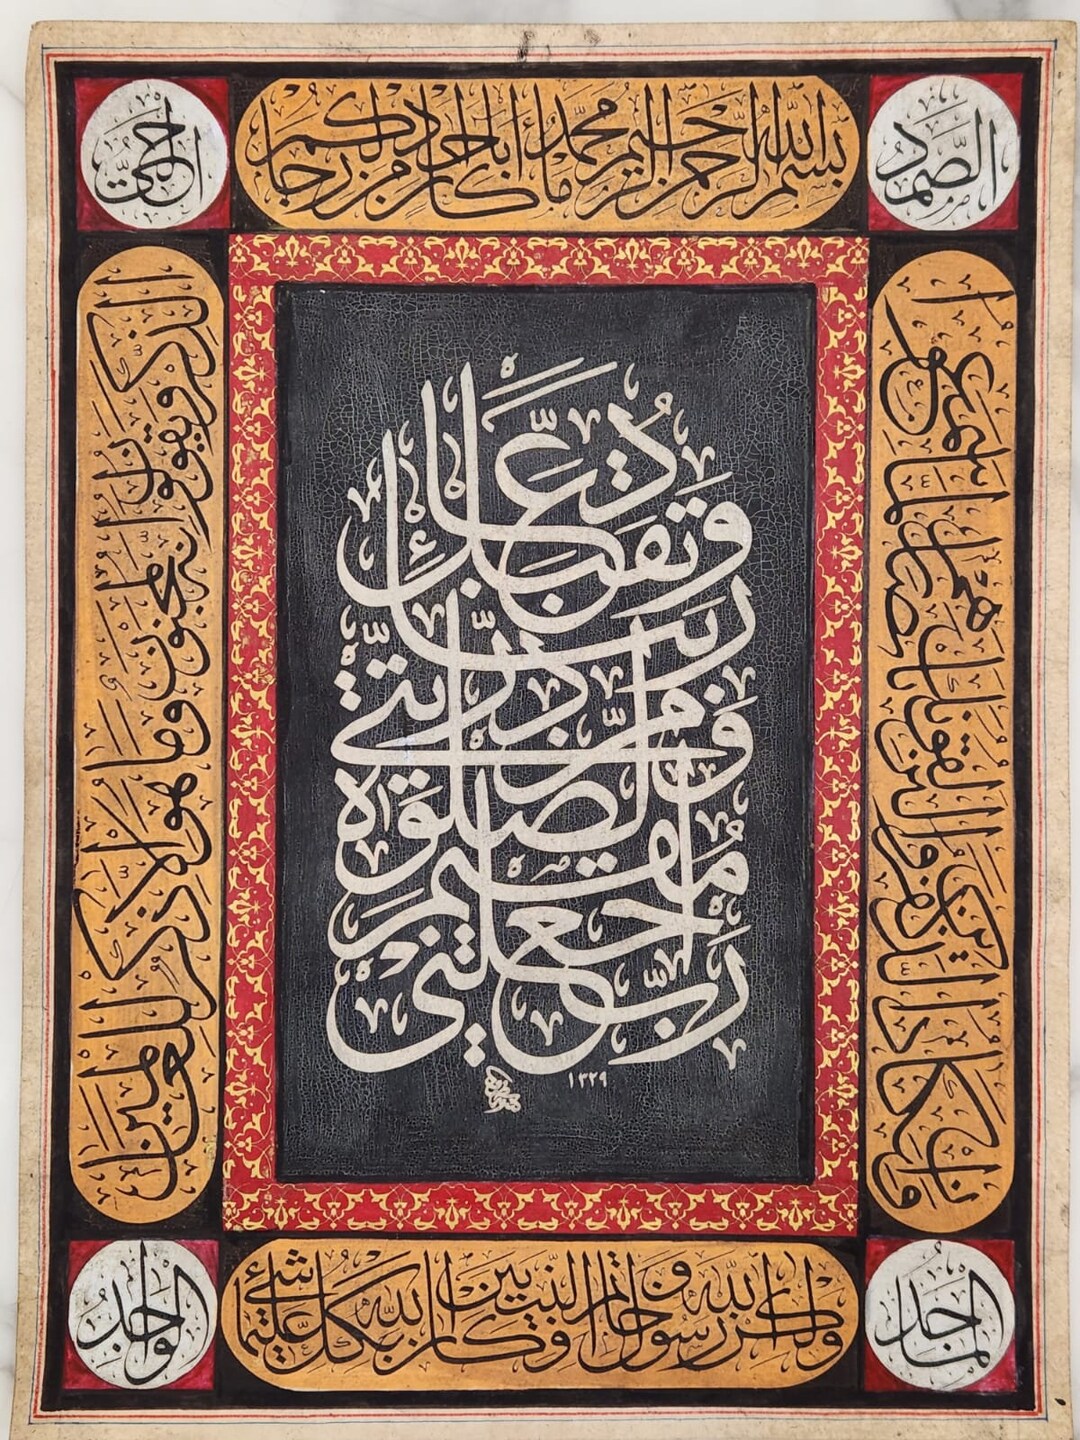 بسم الله الرحمن الرحيم ما كان محمد أبا أحد من رجالكم
الصمد
وإن يكاد الذين كفروا ليزلقونك بأبصارهم لما سمعوا
الذكر ويقولون إنه لمجنون وما هو إلا ذكر للعالمين
رب اجعلني
مقيم الصلوة
ومن ذريتي
ربنا
وتقبل دعاء
١٣٢٩
الماجد
ولكن رسول الله وخاتم النبيين وكان الله بكل شيء عليما